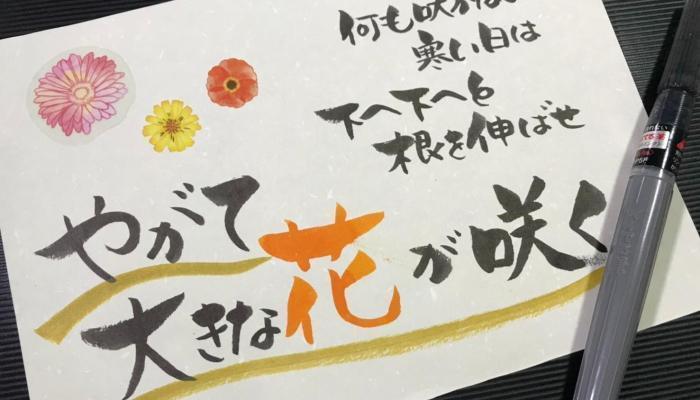 何も咲かない
寒い日は
下へ下へと
根を伸ばせ
やがて
大きな花が咲く